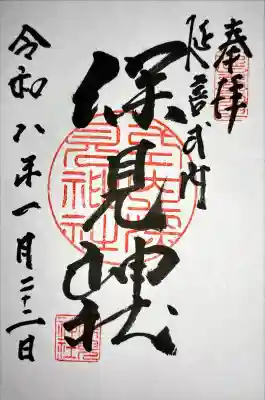 奉拝
延喜式内
深見神社
令和八年一月二十二日